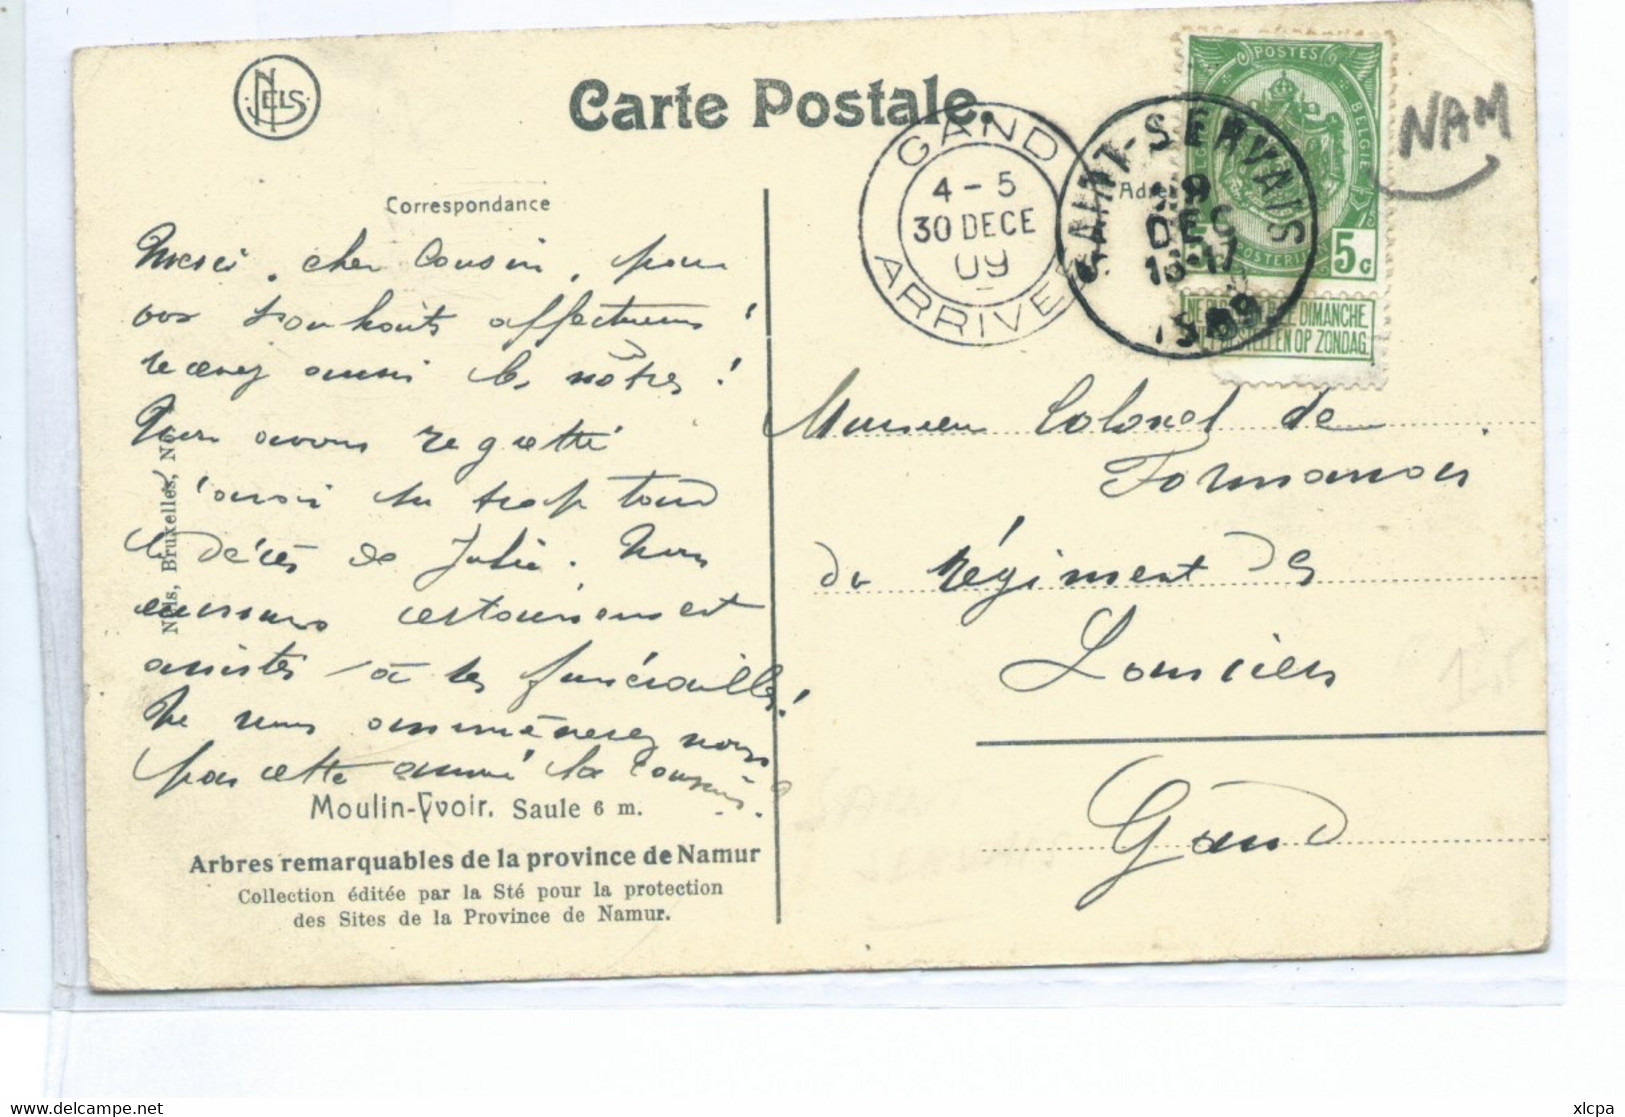 NELS
Carte Postale.
GAND
4-5
30 DECE
09
ARRIVEE
SAINT-SERVAIS
DEC
1909
POSTES
BELGIE
5c
NE PAS LIVRER LE DIMANCHE
NIET BESTELLEN OP ZONDAG
NAM
Correspondance
Merci, cher Cousin, pour
vos souhaits affectueux !
recevez aussi les nôtres !
Nous avons regretté
d'avoir su trop tard
le décès de Julie. Nous
eussions certainement
assisté à ses funérailles !
Ne nous amènerez vous
pas cette année la Cousine ?
Monsieur Colonel de
Formanoir
du Régiment de
Lanciers
Gand
Nels, Bruxelles,
Moulin-Yvoir. Saule 6 m.
Arbres remarquables de la province de Namur
Collection éditée par la Sté pour la protection
des Sites de la Province de Namur.
xlcpa
delcampe.net